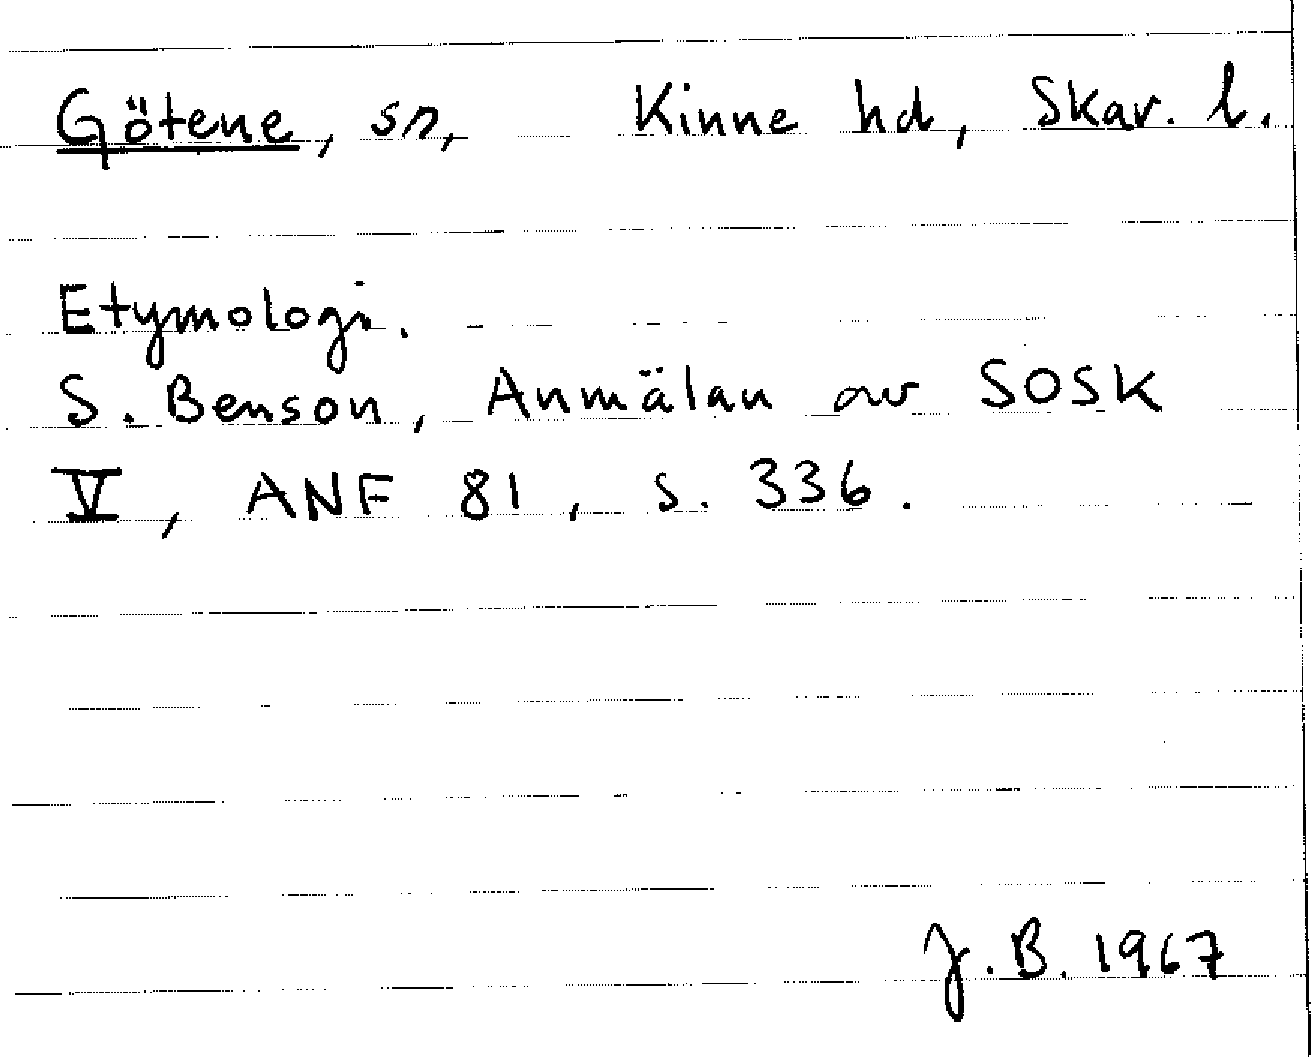 Götene, sn, Kinne hd, Skar. l.
Etymologi.
S. Benson, Anmälan av SOSK
V, ANF 81, s. 336.
J.B. 1967